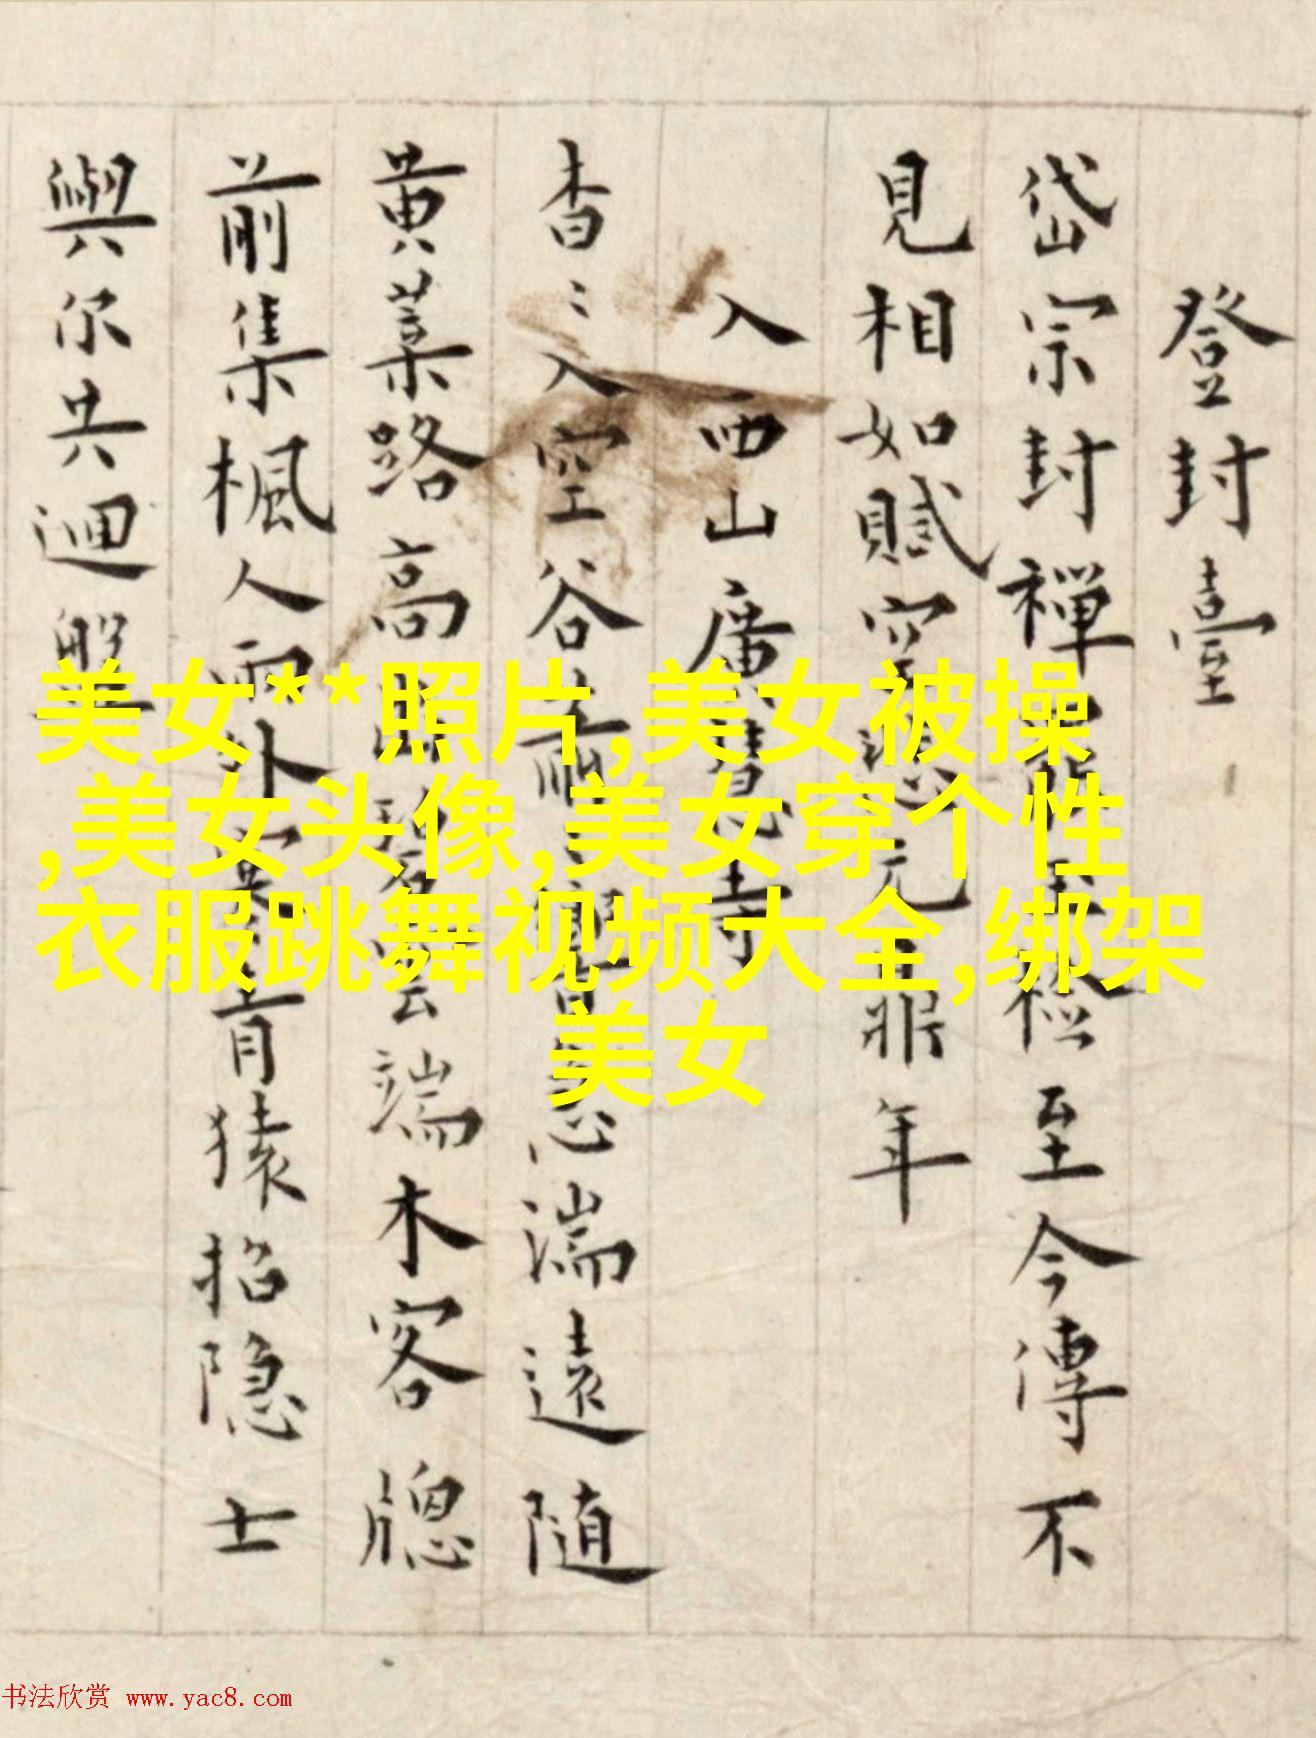 登封臺
岱宗封禪 檢至今傳不
見相如賦 元 年
入西山廣 寺
杳〻入空谷 湍遠随
黄葉路高 碧 雲端木客牕
前集楓人雨外 青猿招隐士
與尔共迴盤
美女**照片,美女被操
,美女头像,美女穿个性
衣服跳舞视频大全,绑架
美女
书法欣赏 www.yac8.com